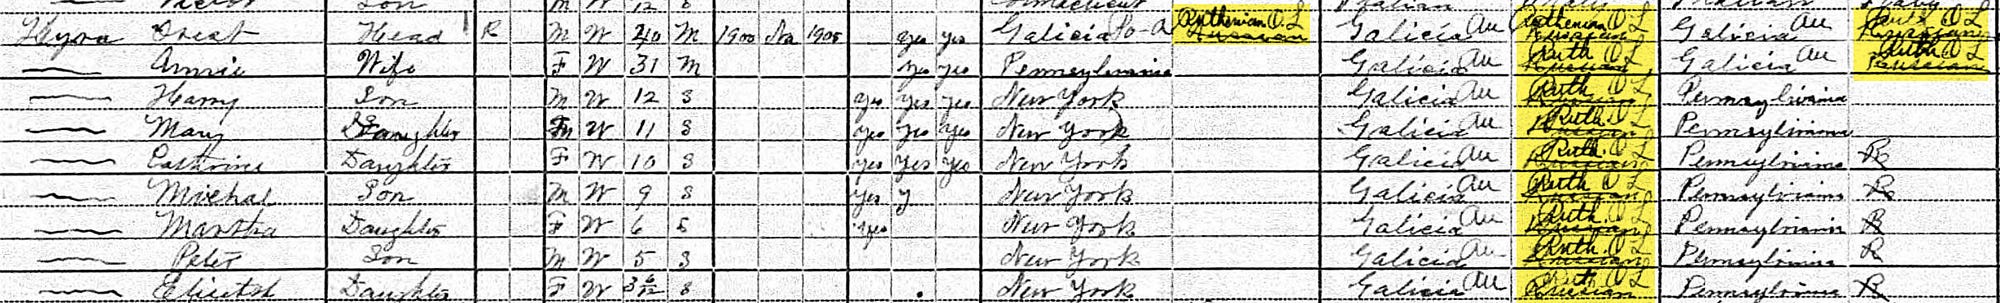 Son M W 12 S Connecticut
Head R M W 40 M 1900 Na 1905 yes yes Galicia Po-A Ruthenian O L Russian Galicia Au Ruthenian O L Russian Galicia Au Ruth O L Russian
Annie Wife F W 31 M yes yes Pennsylvania Galicia Au Ruth O L Russian Galicia Au Ruth O L Russian
Harry Son M W 12 S yes yes yes New York Galicia Au Ruth O L Russian Pennsylvania
Mary Daughter F W 11 S yes yes yes New York Galicia Au Ruth O L Russian Pennsylvania
Daughter F W 10 S yes yes yes New York Galicia Au Ruth. O L Russian Pennsylvania R
Michal Son M W 9 S yes y New York Galicia Au Ruth O L Russian Pennsylvania R
Martha Daughter F W 6 S yes New York Galicia Au Ruth O L Russian Pennsylvania R
Peter Son M W 5 S New York Galicia Au Ruth. O L Russian Pennsylvania R
Daughter F W 3 6/12 S New York Galicia Au Ruth O L Russian Pennsylvania R